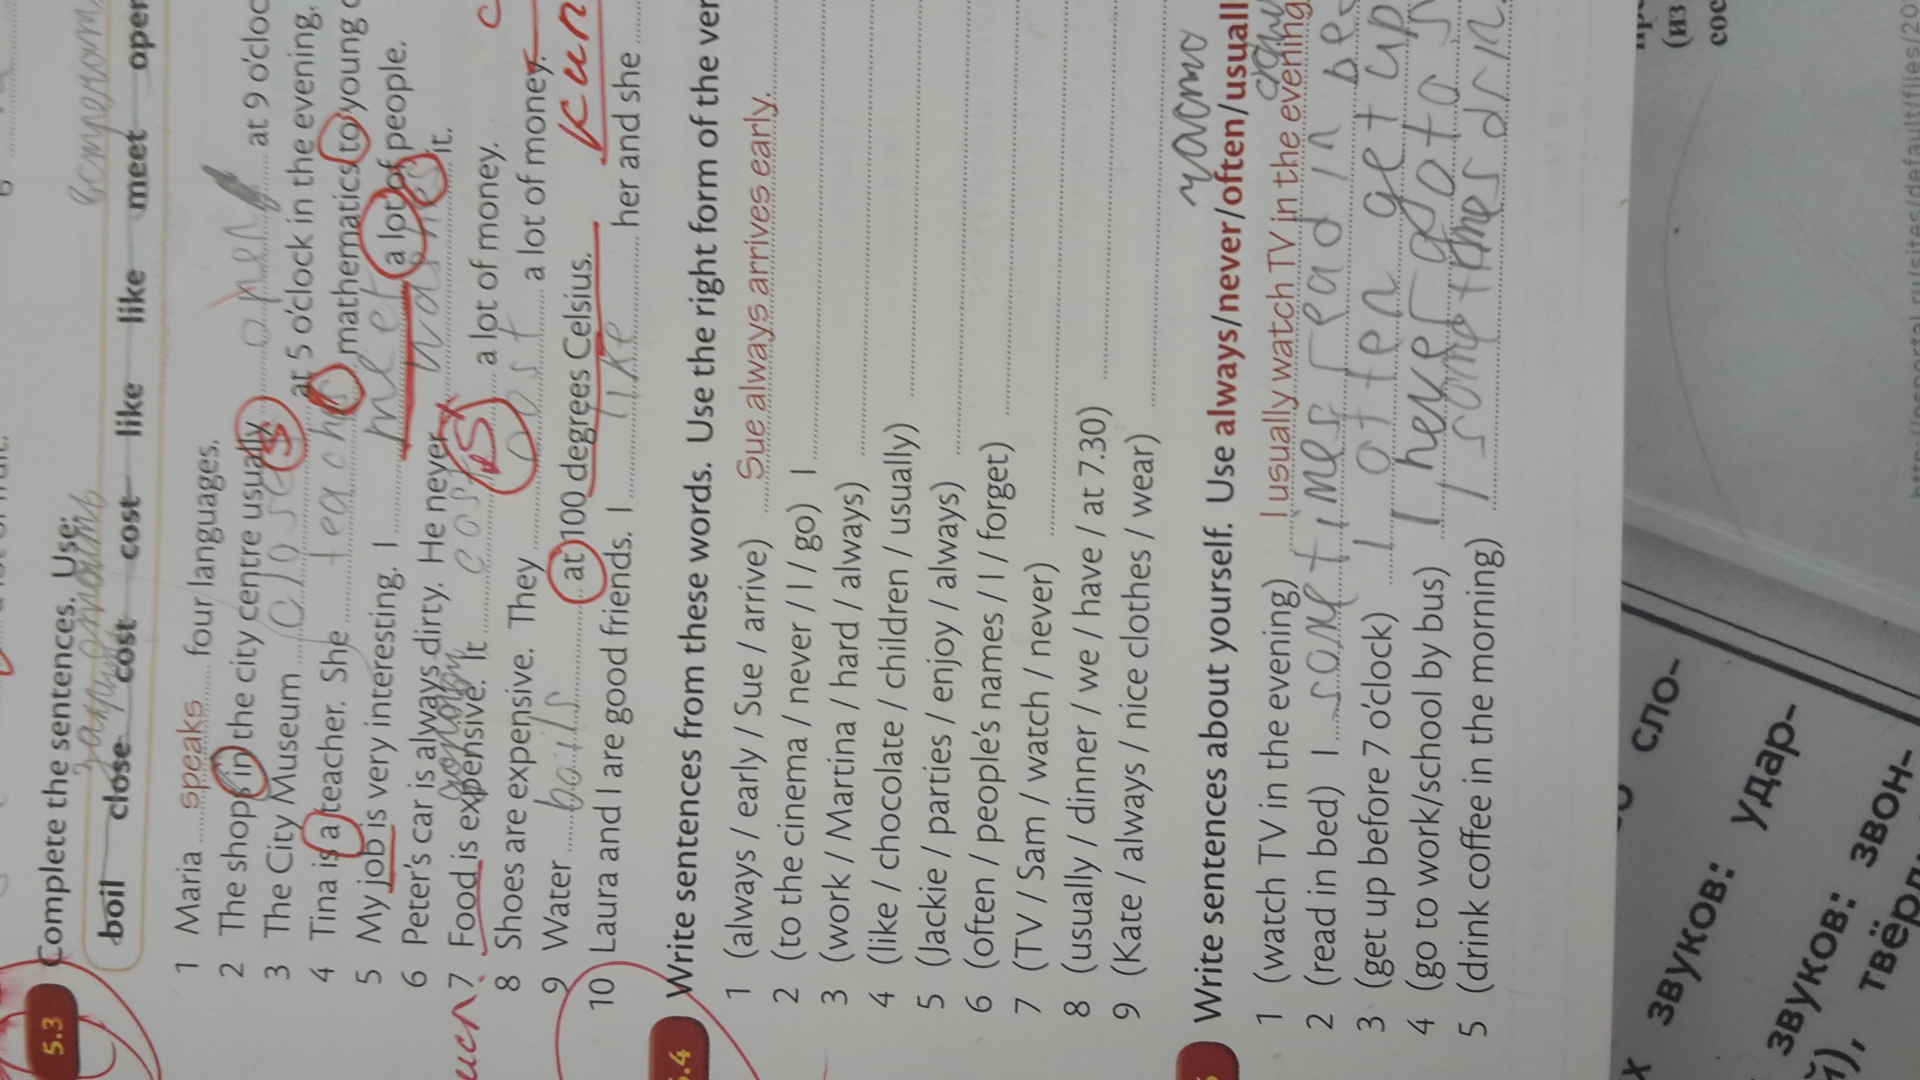 5.3 Complete the sentences. Use:
boil close cost cost like like meet open
1 Maria speaks four languages.
2 The shops in the city centre usually open at 9 o'cloc
3 The City Museum closes at 5 o'clock in the evening.
4 Tina is a teacher. She teaches mathematics to young
5 My job is very interesting. I meet a lot of people.
6 Peter's car is always dirty. He never washes it.
7 Food is expensive. It costs a lot of money.
8 Shoes are expensive. They cost a lot of money.
9 Water boils at 100 degrees Celsius.
10 Laura and I are good friends. I like her and she
5.4 Write sentences from these words. Use the right form of the ver
1 (always / early / Sue / arrive) Sue always arrives early.
2 (to the cinema / never / I / go) I
3 (work / Martina / hard / always)
4 (like / chocolate / children / usually)
5 (Jackie / parties / enjoy / always)
6 (often / people's names / I / forget)
7 (TV / Sam / watch / never)
8 (usually / dinner / we / have / at 7.30)
9 (Kate / always / nice clothes / wear)
часто
Write sentences about yourself. Use always/never/often/usuall
1 (watch TV in the evening) I usually watch TV in the evening
2 (read in bed) I sometimes read in be
3 (get up before 7 o'clock) I often get up
4 (go to work/school by bus) I never go to s
5 (drink coffee in the morning) I some times drin
сло-
звуков: удар-
звуков: звон-
(из
сос